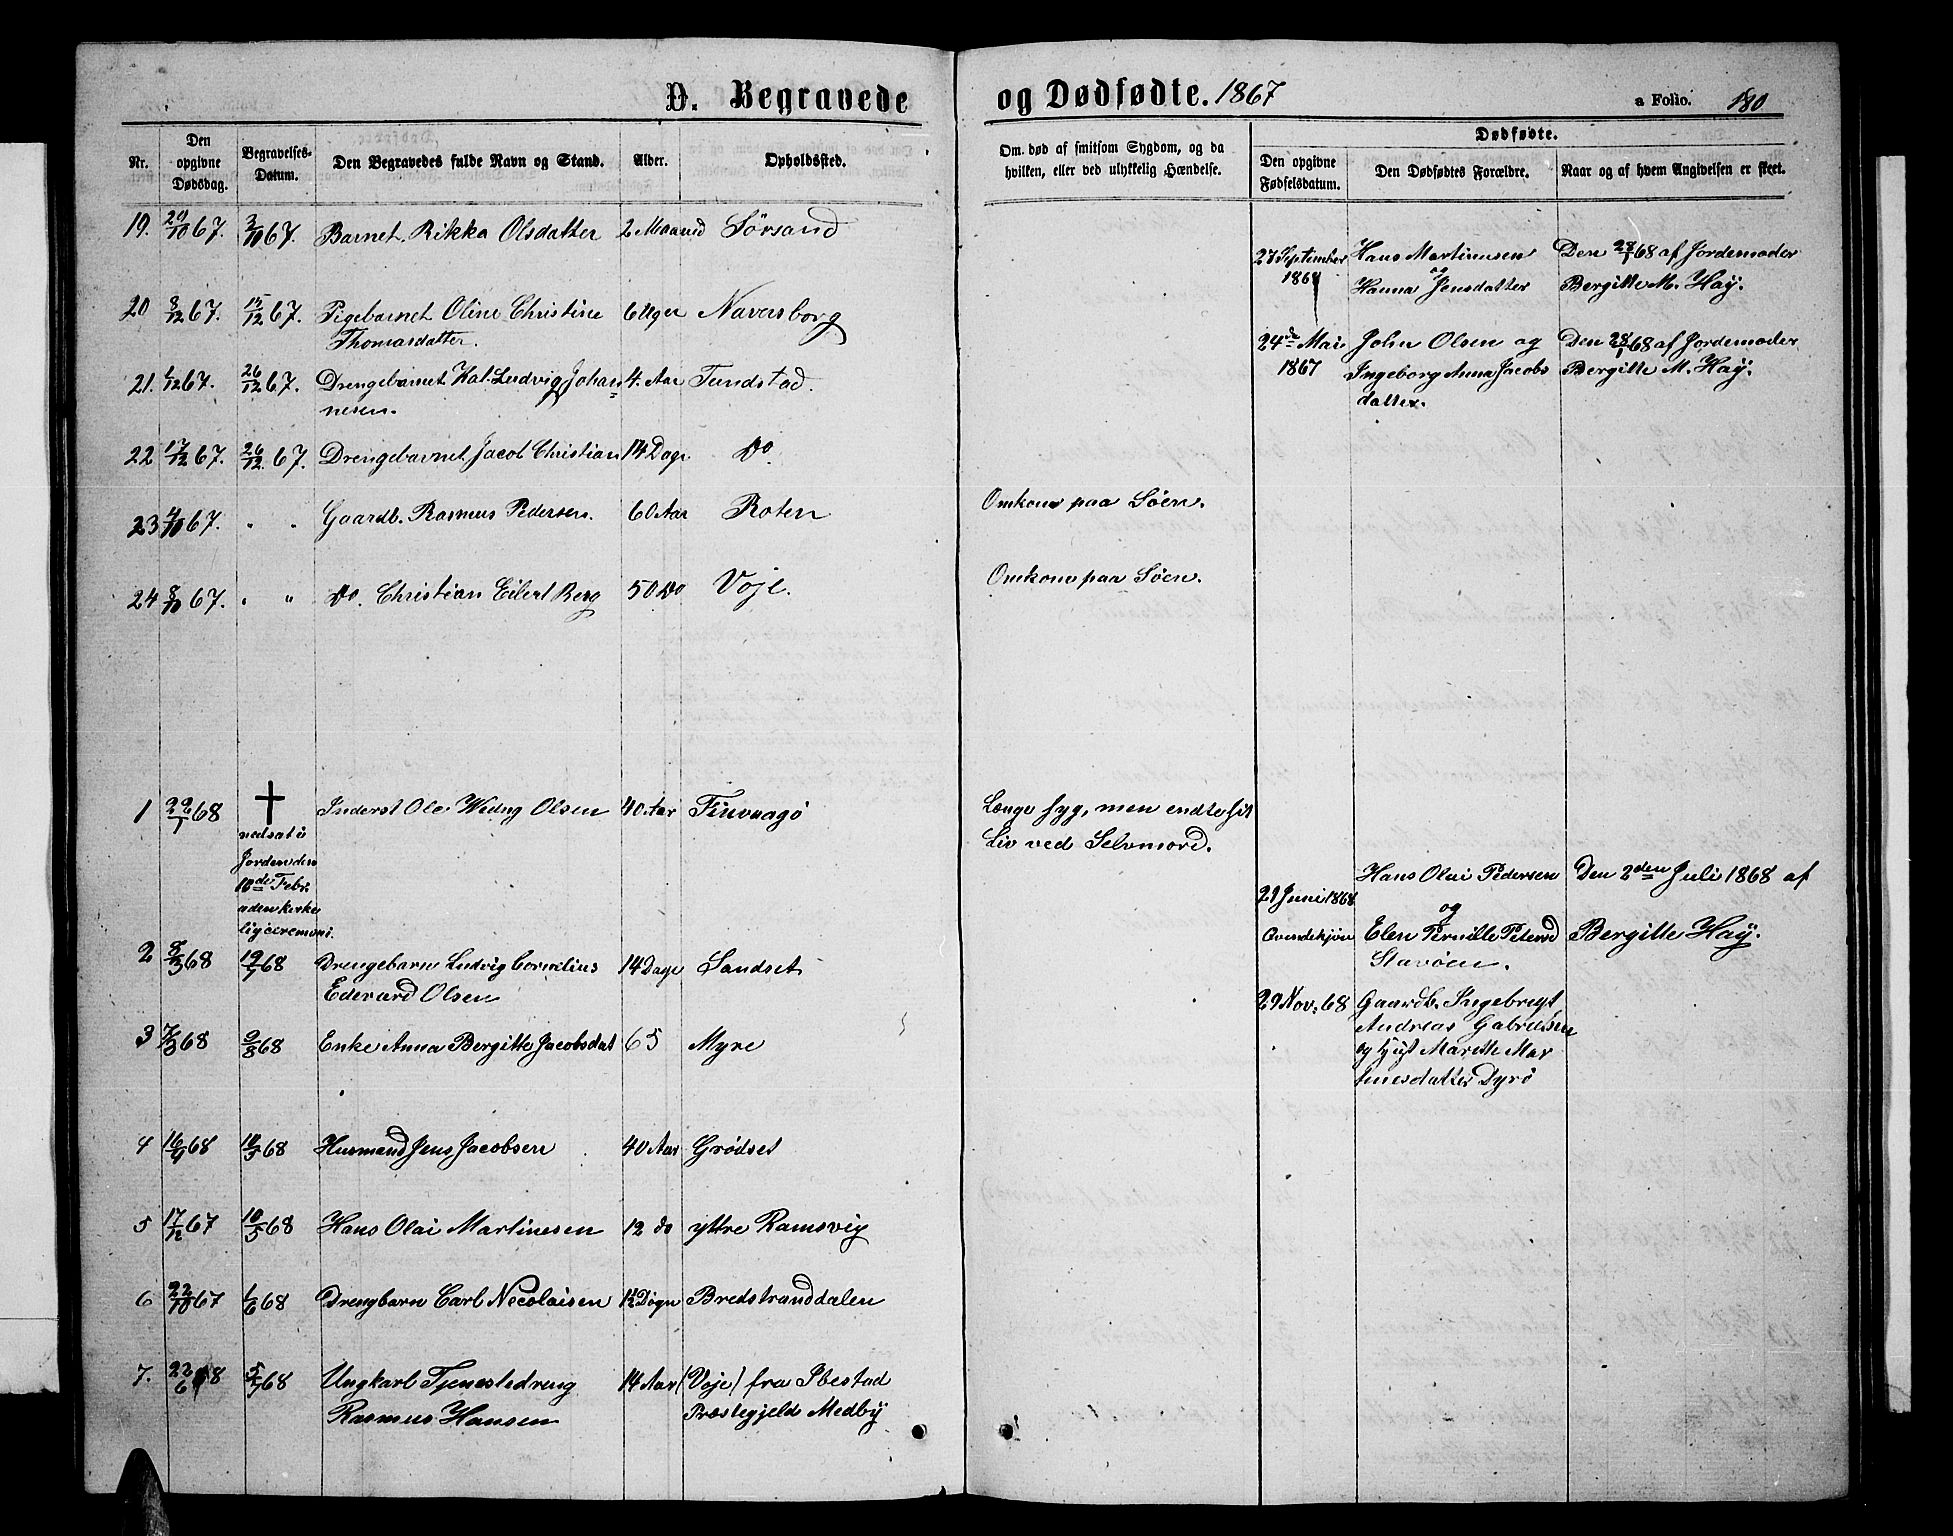 D. Begravede og Dødfødte. 1867
a Folio. 180
Nr.
Den opgivne Dødsdag.
Begravelses-Datum.
Den Begravedes fulde Navn og Stand.
Alder.
Opholdssted.
Om død af smitsom Sygdom, og da hvilken, eller ved ulykkelig Hændelse.
Dødfødte.
Den opgivne Fødselsdatum.
Den Dødfødtes Forældre.
Naar og af hvem Angivelsen er skeet.
19. 20/10 67. 2/10 67. Barnet Rikka Olsdatter 2 Maaned Sørsand
20 8/12 67. 15/12 67. Pigebarnet Oline Christine 6 Uger Naversborg
Thomasdatter.
21. 1/12 67. 26/12 67. Drengebarnet Kal. Ludvig Johan= 4. Aar Tundstad.
nesen.
22 17/12 67. 26/12 67. Drengebarnet Jacob Christian 14 Dage Do
23 4/10 67. " " Gaardb. Rasmus Pedersen. 60 Aar Roten Omkom paa Søen.
24 8/10 67. " " Do. Christian Eilert Berg 50 Do Voje. Omkom paa Søen.
27 September Hans Martinusen Den 28/1 68 af Jordemoder
1867 og
Hanna Jensdatter Bergitte M. Haÿ.
24de Mai John Olsen og Den 28/1 68 af Jordemoder
1867 Ingeborg Anna Jacobs Bergitte M. Haÿ.
datter.
1 22/1 68 Inderst Ole Olsen 40 Aar Finvaagø Længe syg, men endte sit
Liv ved Selvmord.
nedsat i
Jorden den
10de Febr.
uden kirke
lig ceremoni.
2 68 19/7 68 Drengebarn Ludvig Cornelius 14 Dage Sandset
Edevard Olsen
3 7/3 68 9/8 68 Enke Anna Bergitte Jacobsdat 65 Myre
4 16/4 68 10/5 68 Husmand Jens Jacobsen 40 Aar Grødset
5 17/12 67 10/5 68 Hans Olai Martinesen 12 do yttre Ramsvig
6 22/10 67 1/6 68 Drengbarn Carl Necolaisen 1½ Døgn Bredstranddalen
7. 22/6 68 5/7 68 Ungkarl Tjenestedreng 14 Aar (Voje) fra Ibestad
Rasmus Hansen Præstegjeld Medbÿ
29 Juni 1868 Hans Olai Pedersen Den 2den Juli 1868 af
og
Qvindekjøn Elen Pernille Petersd Bergitte Haÿ.
Stavøen.
29 Nov. 68 Gaardb. Ingebrigt
Andreas Gabrielsen
og Marette Mar
tinesdatter Dyrø